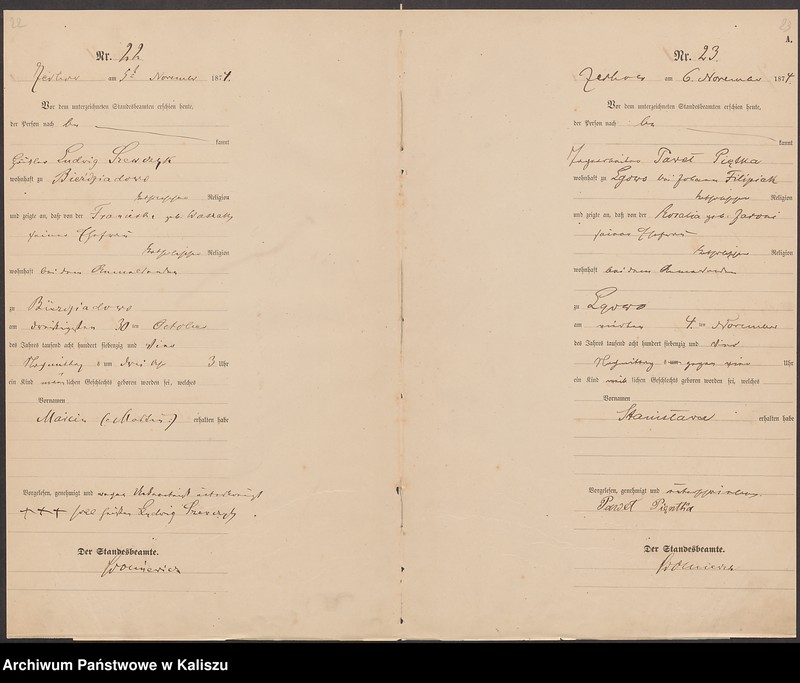 22
Nr. 22.
Zerkow am 5t November 1874.
Vor dem unterzeichneten Standesbeamten erschien heute,
der Person nach be
kannt
Ludwig Szewczyk
wohnhaft zu Bieździadowo
katholischer Religion
und zeigte an, daß von der Franciska geb.
seiner Ehefrau
katholischer Religion
wohnhaft bei dem Anmeldenden
zu Bieździadowo
am dreißigsten 30 ten October
des Jahres tausend acht hundert siebenzig und vier
Nachmittag um drei Uhr 3 Uhr
ein Kind männlichen Geschlechts geboren worden sei, welches
Vornamen
Marcin (Martin) erhalten habe
Vorgelesen, genehmigt und wegen unterkreuzt
+++ Ludwig Szewczyk.
Der Standesbeamte.
23
A.
Nr. 23.
Zerkow am 6. November 1874.
Vor dem unterzeichneten Standesbeamten erschien heute,
der Person nach be
kannt
Paweł Piątka
wohnhaft zu Lgowo bei Johann Filipiak
katholischer Religion
und zeigte an, daß von der Rosalia geb.
seiner Ehefrau
katholischer Religion
wohnhaft bei dem Anmeldenden
zu Lgowo
am vierten 4. ten November
des Jahres tausend acht hundert siebenzig und vier
Nachmittag um gegen vier Uhr
ein Kind weiblichen Geschlechts geboren worden sei, welches
Vornamen
Stanisława erhalten habe
Vorgelesen, genehmigt und unterschrieben.
Paweł Piątka
Der Standesbeamte.
Archiwum Państwowe w Kaliszu